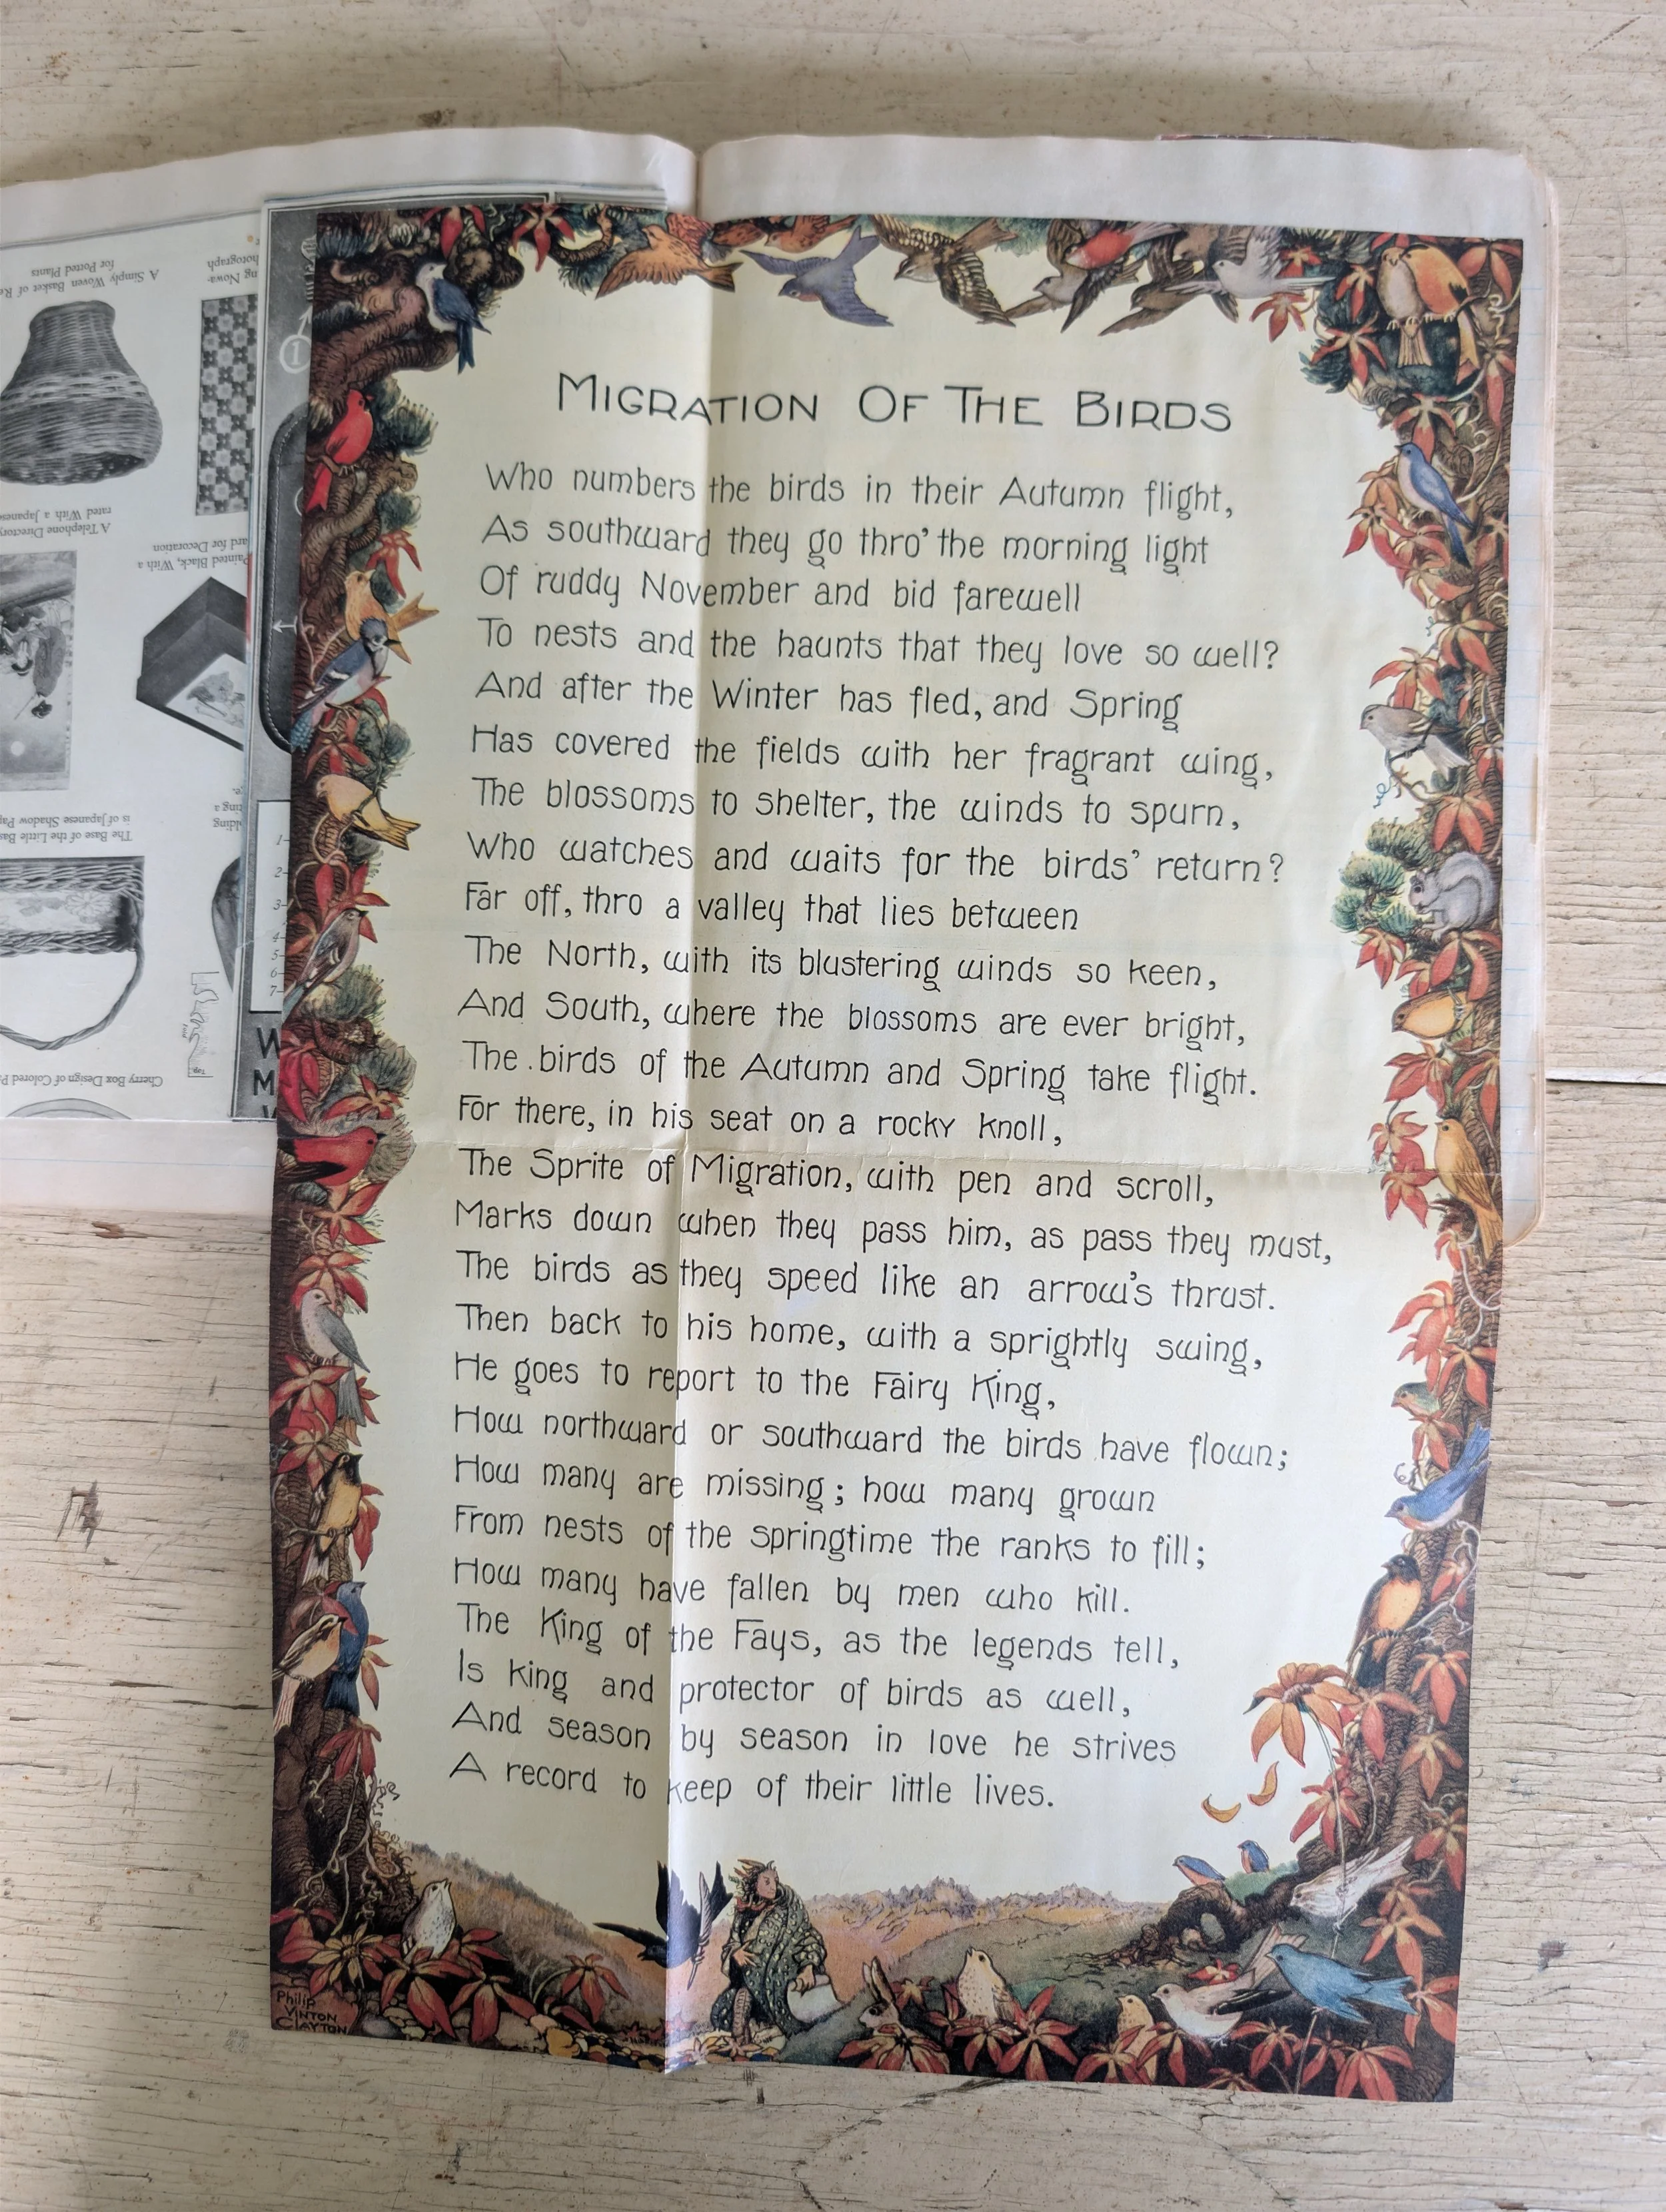 A Simply Woven Basket of
for Potted Plants
A Telephone
rated With a
Painted Black, With a
ard for Decoration
The Base of the Little
is of Japanese Shadow
Cherry Box Design of Colored
Top
1
1
2
3
4
5
6
7
W
M
MIGRATION OF THE BIRDS
Who numbers the birds in their Autumn flight,
As southward they go thro' the morning light
Of ruddy November and bid farewell
To nests and the haunts that they love so well?
And after the Winter has fled, and Spring
Has covered the fields with her fragrant wing,
The blossoms to shelter, the winds to spurn,
Who watches and waits for the birds' return?
Far off, thro a valley that lies between
The North, with its blustering winds so keen,
And South, where the blossoms are ever bright,
The birds of the Autumn and Spring take flight.
For there, in his seat on a rocky knoll,
The Sprite of Migration, with pen and scroll,
Marks down when they pass him, as pass they must,
The birds as they speed like an arrow's thrust.
Then back to his home, with a sprightly swing,
He goes to report to the Fairy King,
How northward or southward the birds have flown;
How many are missing; how many grown
From nests of the springtime the ranks to fill;
How many have fallen by men who kill.
The King of the Fays, as the legends tell,
Is king and protector of birds as well,
And season by season in love he strives
A record to keep of their little lives.
Philip
VINTON
CLAYTON